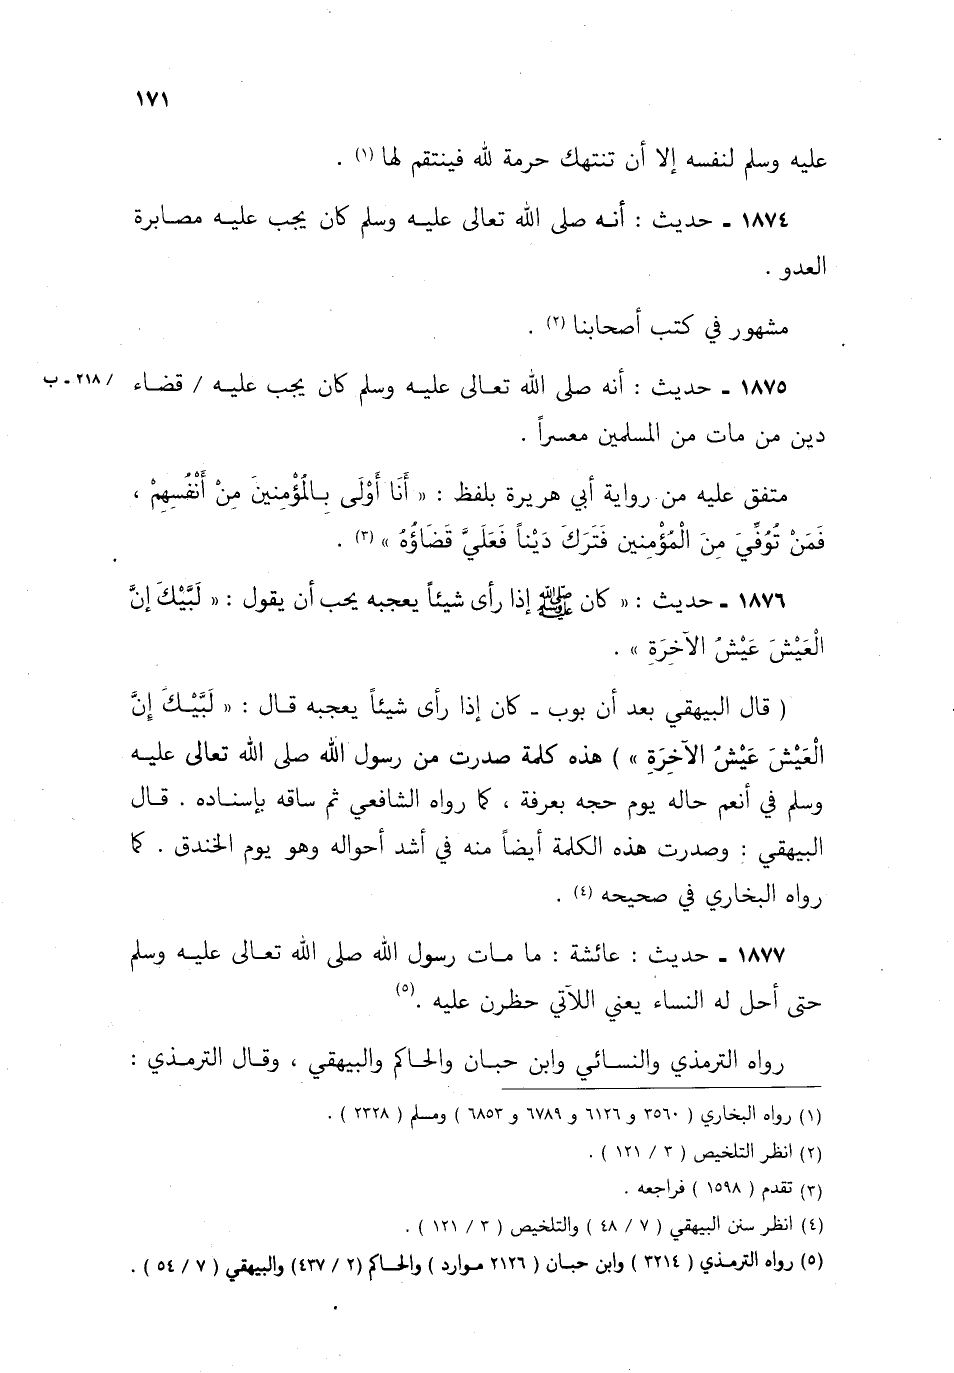 ١٧١
عليه وسلم لنفسه إلا أن تنتهك حرمة لله فينتقم لها (١) .
١٨٧٤ ـ حديث : أنـه صلى الله تعالى عليـه وسلم كان يجب عليـه مصـابرة
العدو .
مشهور في كتب أصحابنا (٢) .
١٨٧٥ ـ حديث : أنه صلى الله تعـالى عليـه وسلم كان يجب عليـه / قضـاء / ٢١٨ ـ ب
دين من مات من المسلمين معسراً .
متفق عليه من رواية أبي هريرة بلفظ : « أَنَا أَوْلَى بِـالْمُؤْمِنِينَ مِنْ أَنْفُسِهِمْ ،
فَمَنْ تُوُفِّيَ مِنَ الْمُؤْمِنِين فَتَرَكَ دَيْناً فَعَلَيَّ قَضَاؤُهُ » (٣) .
١٨٧٦ ـ حديث : « كان ﷺ إذا رأى شيئاً يعجبه يحب أن يقول : « لَبَّيْكَ إنَّ
الْعَيْشَ عَيْشُ الآخِرَةِ » .
( قال البيهقي بعد أن بوب ـ كان إذا رأى شيئاً يعجبه قـال : « لَبَّيْـكَ إِنَّ
الْعَيْشَ عَيْشُ الآخِرَةِ » ) هذه كلمة صدرت من رسول الله صلى الله تعالى عليـه
وسلم في أنعم حاله يوم حجه بعرفة ، كما رواه الشافعي ثم ساقه بإسنـاده . قـال
البيهقي : وصدرت هذه الكلمة أيضاً منه في أشد أحواله وهو يوم الخندق . كما
رواه البخاري في صحيحه (٤) .
١٨٧٧ ـ حديث : عائشة : ما مـات رسول الله صلى الله تعـالى عليـه وسلم
حتى أحل له النساء يعني اللآتي حظرن عليه .(٥)
رواه الترمذي والنسـائي وابن حبـان والحـاكم والبيهقي ، وقـال الترمـذي :
(١) رواه البخاري ( ٣٥٦٠ و ٦١٢٦ و ٦٧٨٩ و ٦٨٥٣ ) ومسلم ( ٢٣٢٨ ) .
(٢) انظر التلخيص ( ٣ / ١٢١ ) .
(٣) تقدم ( ١٥٩٨ ) فراجعه .
(٤) انظر سنن البيهقي ( ٧ / ٤٨ ) والتلخيص ( ٣ / ١٢١ ) .
(٥) رواه الترمـذي ( ٣٢١٤ ) وابن حبـان ( ٢١٢٦ موارد ) والحـاكم (٢ / ٤٣٧) والبيهقي ( ٧ / ٥٤ ) .